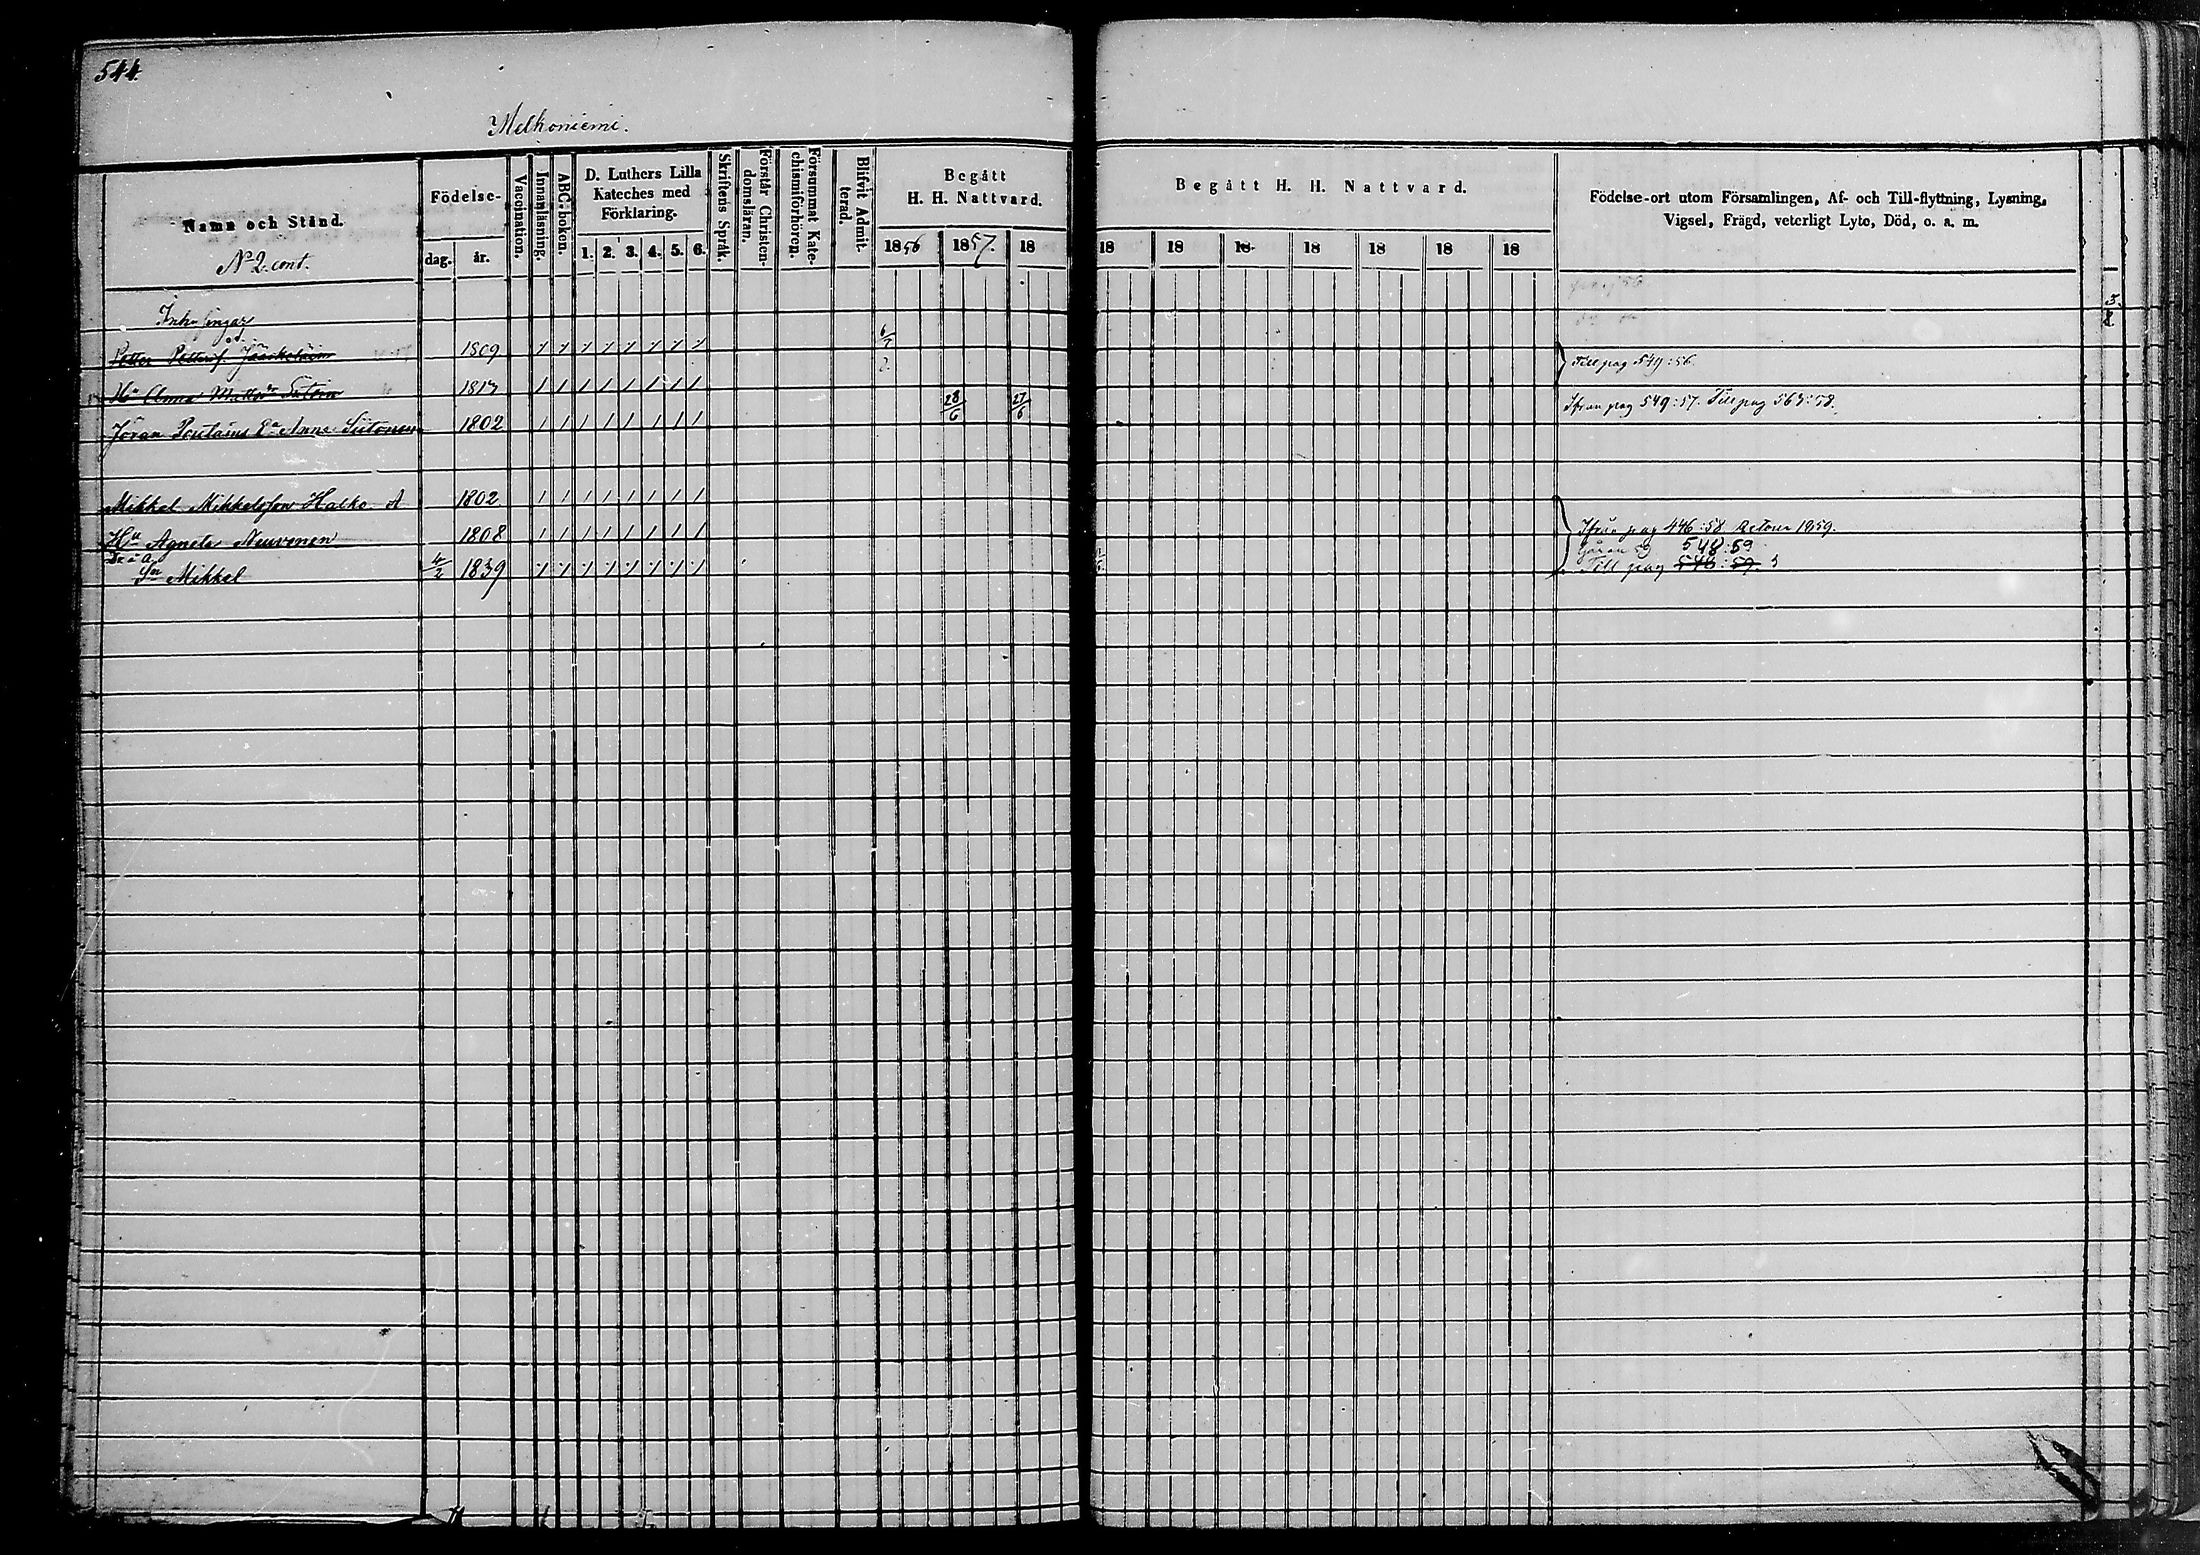 544.
Melkoniemi.
Namn och Stånd.
No 2. cont.
Födelse-
dag. år.
Vaccination.
Innanläsning.
ABC-boken.
D. Luthers Lilla
Kateches med
Förklaring.
1. 2. 3. 4. 5. 6.
Skriftens Språk.
Förstår Christen-
domsläran.
Försummat Kate-
chismiförhören.
Blifvit Admit-
terad.
Begått
H. H. Nattvard.
1856 1857. 18
Begått H. H. Nattvard.
18 18 18 18 18 18 18
Födelse-ort utom Församlingen, Af- och Till-flyttning, Lysning,
Vigsel, Frägd, veterligt Lyte, Död, o. a. m.
Inhysingar
Petter Petterss. Jääskeläin 1809 / / / / / / / / 6/7
Till pag 549:56.
Hu Anna 1813 / / / / / / / /
Jöran Pentäins Ea Anna Siitonen 1802 / / / / / / / / 28/6 27/6
Ifrån pag 549:57. Till pag 563:58.
Mikkel Mikkelsson Halko 1802 / / / / / / / /
Hu Agneta Neuvonen 1808 / / / / / / / /
Ifrån pag 446:58
1859.
548:59
Son Mikkel 4/2 1839 / / / / / / / /
Till pag 546:59.